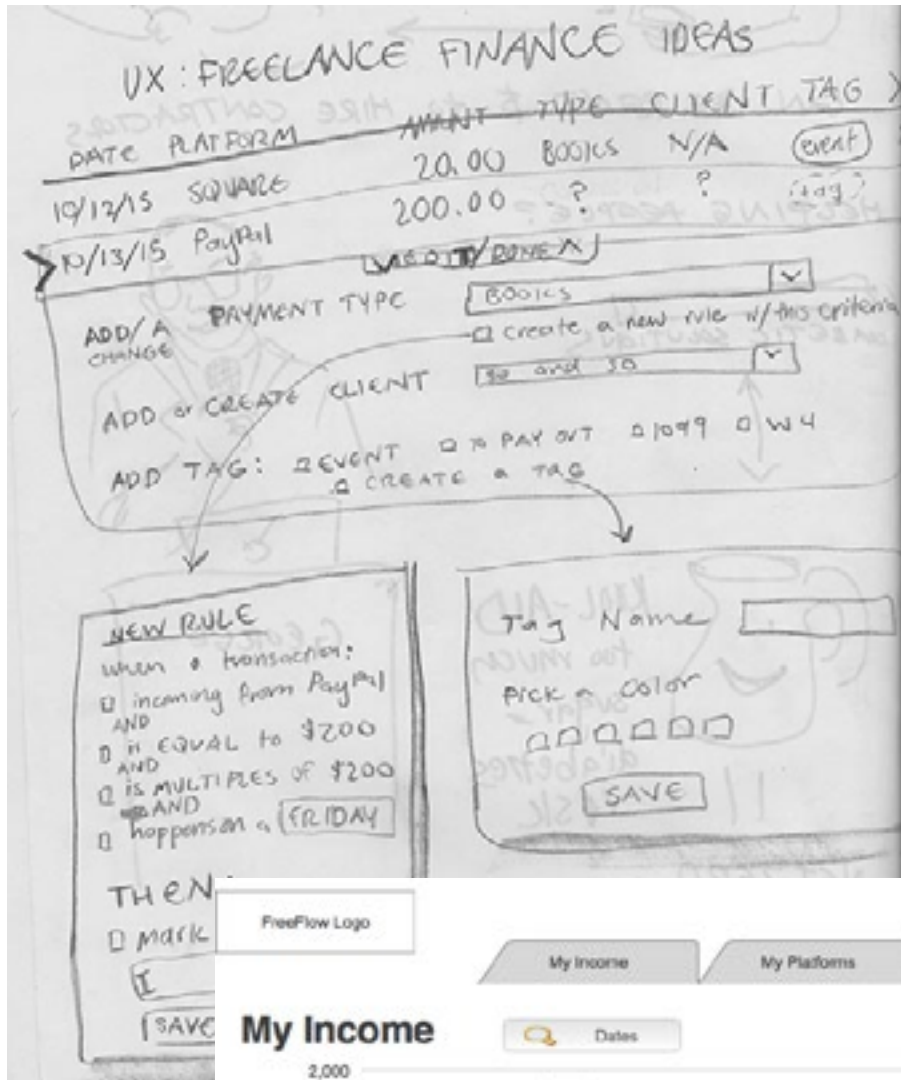 UX: FREELANCE FINANCE IDEAS
DATE PLATFORM AMOUNT TYPE CLIENT TAG
10/12/15 SQUARE 20.00 BOOKS N/A event
10/13/15 PayPal 200.00 ? ? tag
DONE
ADD/A CHANGE
PAYMENT TYPE BOOKS
Create a new rule w/this criteria
ADD or CREATE CLIENT so and so
ADD TAG: EVENT TO PAY OUT 1099 W4
CREATE a TAG
NEW RULE
when a transaction:
incoming from PayPal
AND
is EQUAL to $200
AND
is MULTIPLES OF $200
AND
happens on a FRIDAY
THEN
Mark
SAVE
Tag Name
Pick a Color
SAVE
FreeFlow Logo
My Income
My Platforms
My Income
Dates
2,000